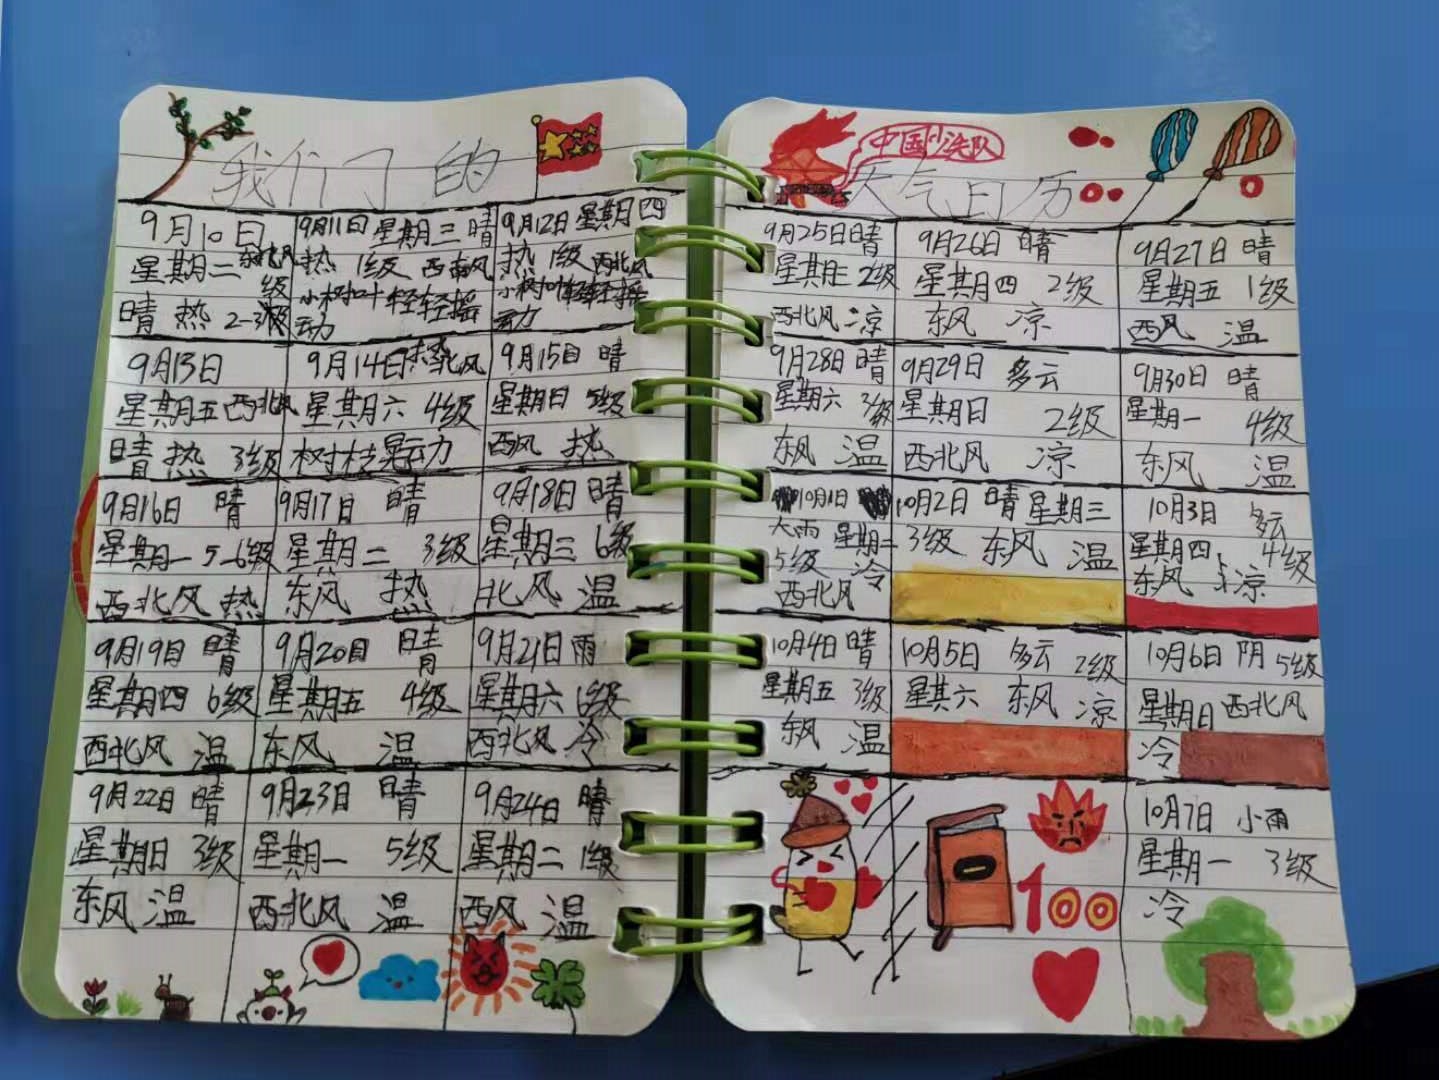 我们的
9月10日
星期二
级
晴 热 2-3级
9月11日 星期三 晴
热 1级 西南风
小树叶轻轻摇
动
9月12日 星期四
热 1级 西北风
小树叶轻轻摇
动
9月13日
星期五 西北风
晴 热 3级
9月14日 热 北风
星期六 4级
树枝晃动
9月15日 晴
星期日 5级
西风 热
9月16日 晴
星期一 5-6级
西北风 热
9月17日 晴
星期二 3级
东风 热
9月18日 晴
星期三 6级
北风 温
9月19日 晴
星期四 6级
西北风 温
9月20日 晴
星期五 4级
东风 温
9月21日 雨
星期六 6级
西北风 冷
9月22日 晴
星期日 3级
东风 温
9月23日 晴
星期一 5级
西北风 温
9月24日 晴
星期二 1级
西风 温
中国少先队
天气日历
9月25日 晴
星期三 2级
西北风 凉
9月26日 晴
星期四 2级
东风 凉
9月27日 晴
星期五 1级
西风 温
9月28日 晴
星期六 3级
东风 温
9月29日 多云
星期日 2级
西北风 凉
9月30日 晴
星期一 4级
东风 温
10月1日
大雨 星期二
5级 冷
西北风
10月2日 晴 星期三
3级 东风 温
10月3日 多云
星期四 4级
东风 凉
10月4日 晴
星期五 3级
东风 温
10月5日 多云 2级
星其六 东风 凉
10月6日 阴 5级
星期日 西北风
冷
100
10月7日 小雨
星期一 3级
冷